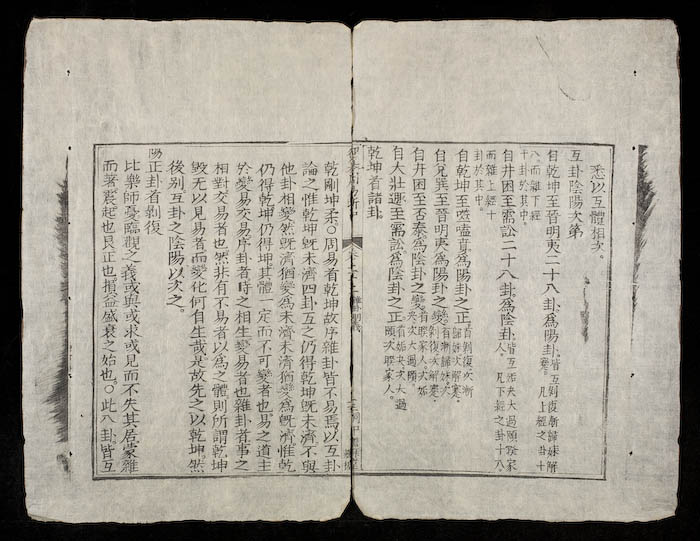 悉以互體相次。
互卦陰陽次第
自乾坤至晉明夷二十八卦為陽卦皆互剝復漸歸妹解蹇凡上經之卦十八而雜下經十卦於其中
自井困至需訟二十八卦為陰卦皆互姤夬大過頤睽家人凡下經之卦十八而雜上經十卦於其中
自乾坤至噬嗑賁為陽卦之正首剝復次漸歸妹次解蹇
自兌巽至晉明夷為陽卦之變首漸歸妹次剝復次解蹇
自井困至否泰為陰卦之變首睽家人次姤夬次大過頤
自大壯遯至需訟為陰卦之正首姤夬次大過頤次睽家人
乾坤者諸卦
乾剛坤柔○周易首乾坤故序雜卦皆不易焉以互卦
論之惟乾坤既未濟四卦互之仍得乾坤既未濟不與
他卦相變然既濟猶變為未濟未濟猶變為既濟惟乾
仍得乾坤仍得坤其體一定而不可變者也易之道主
於變易交易序卦者時之相生變易者也雜卦者事之
相對交易者也然非有不易者以為之體則所謂乾坤
毀无以見易者而變化何自生哉是故先之以乾坤然
後別互卦之陰陽以次之
陽正卦首剝復
比樂師憂臨觀之義或與或求或見而不失其居蒙雜
而著震起也艮止也損益盛衰之始也○此八卦皆互